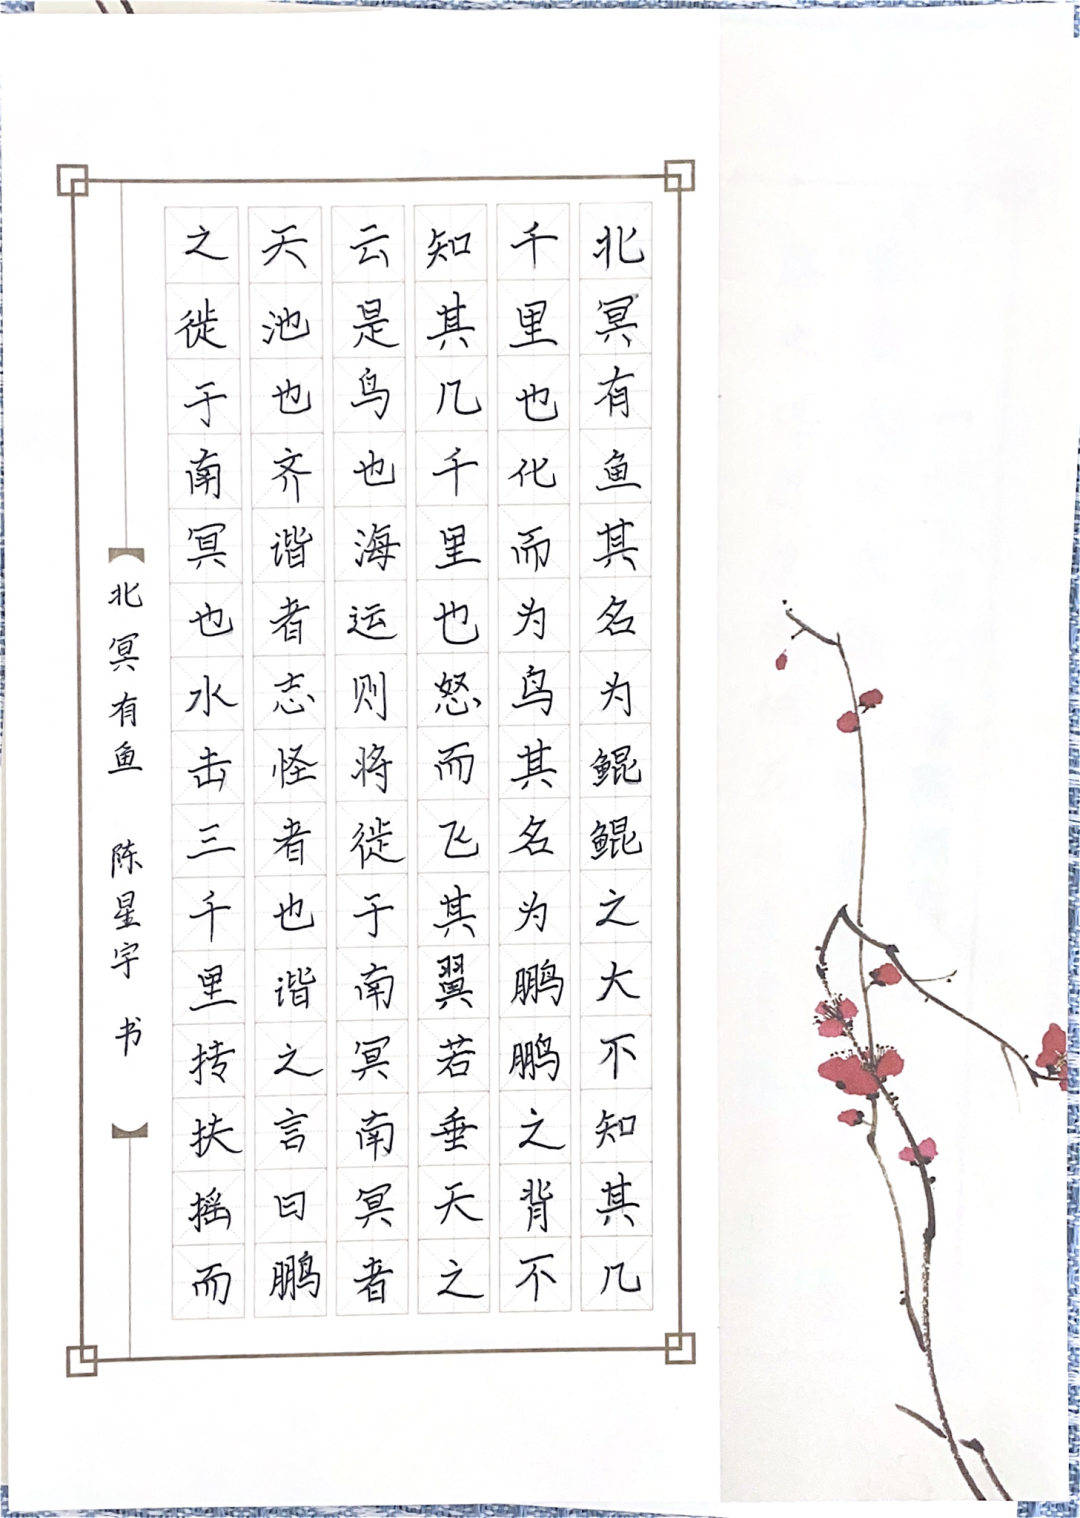 北冥有鱼其名为鲲鲲之大不知其几
千里也化而为鸟其名为鹏鹏之背不
知其几千里也怒而飞其翼若垂天之
云是鸟也海运则将徙于南冥南冥者
天池也齐谐者志怪者也谐之言曰鹏
之徙于南冥也水击三千里抟扶摇而
北冥有鱼 陈星宇 书